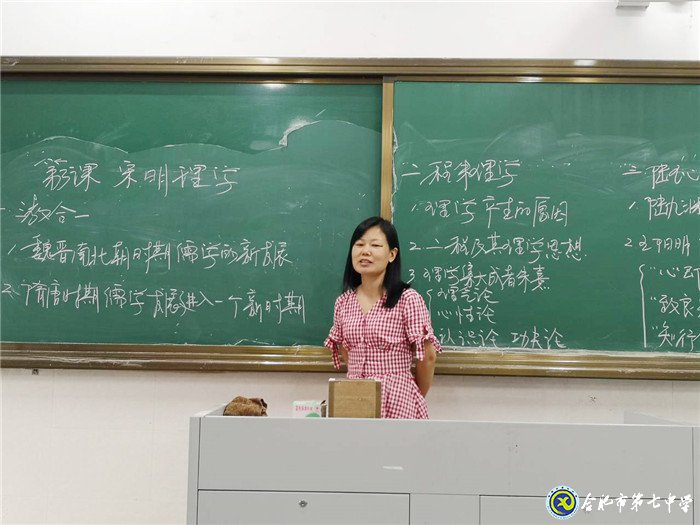 第3课 宋明理学
一 三教合一
1. 魏晋南北朝时期儒学的新发展
2. 隋唐时期儒学发展进入一个新时期
二 程朱理学
1. 理学产生的原因
2. 二程及其理学思想
3. 理学集大成者朱熹
理气论
心性论
认识论 功夫论
三 陆王心
1. 陆九渊
2. 王阳明
"心
"致良
"知行
合肥市第七中学